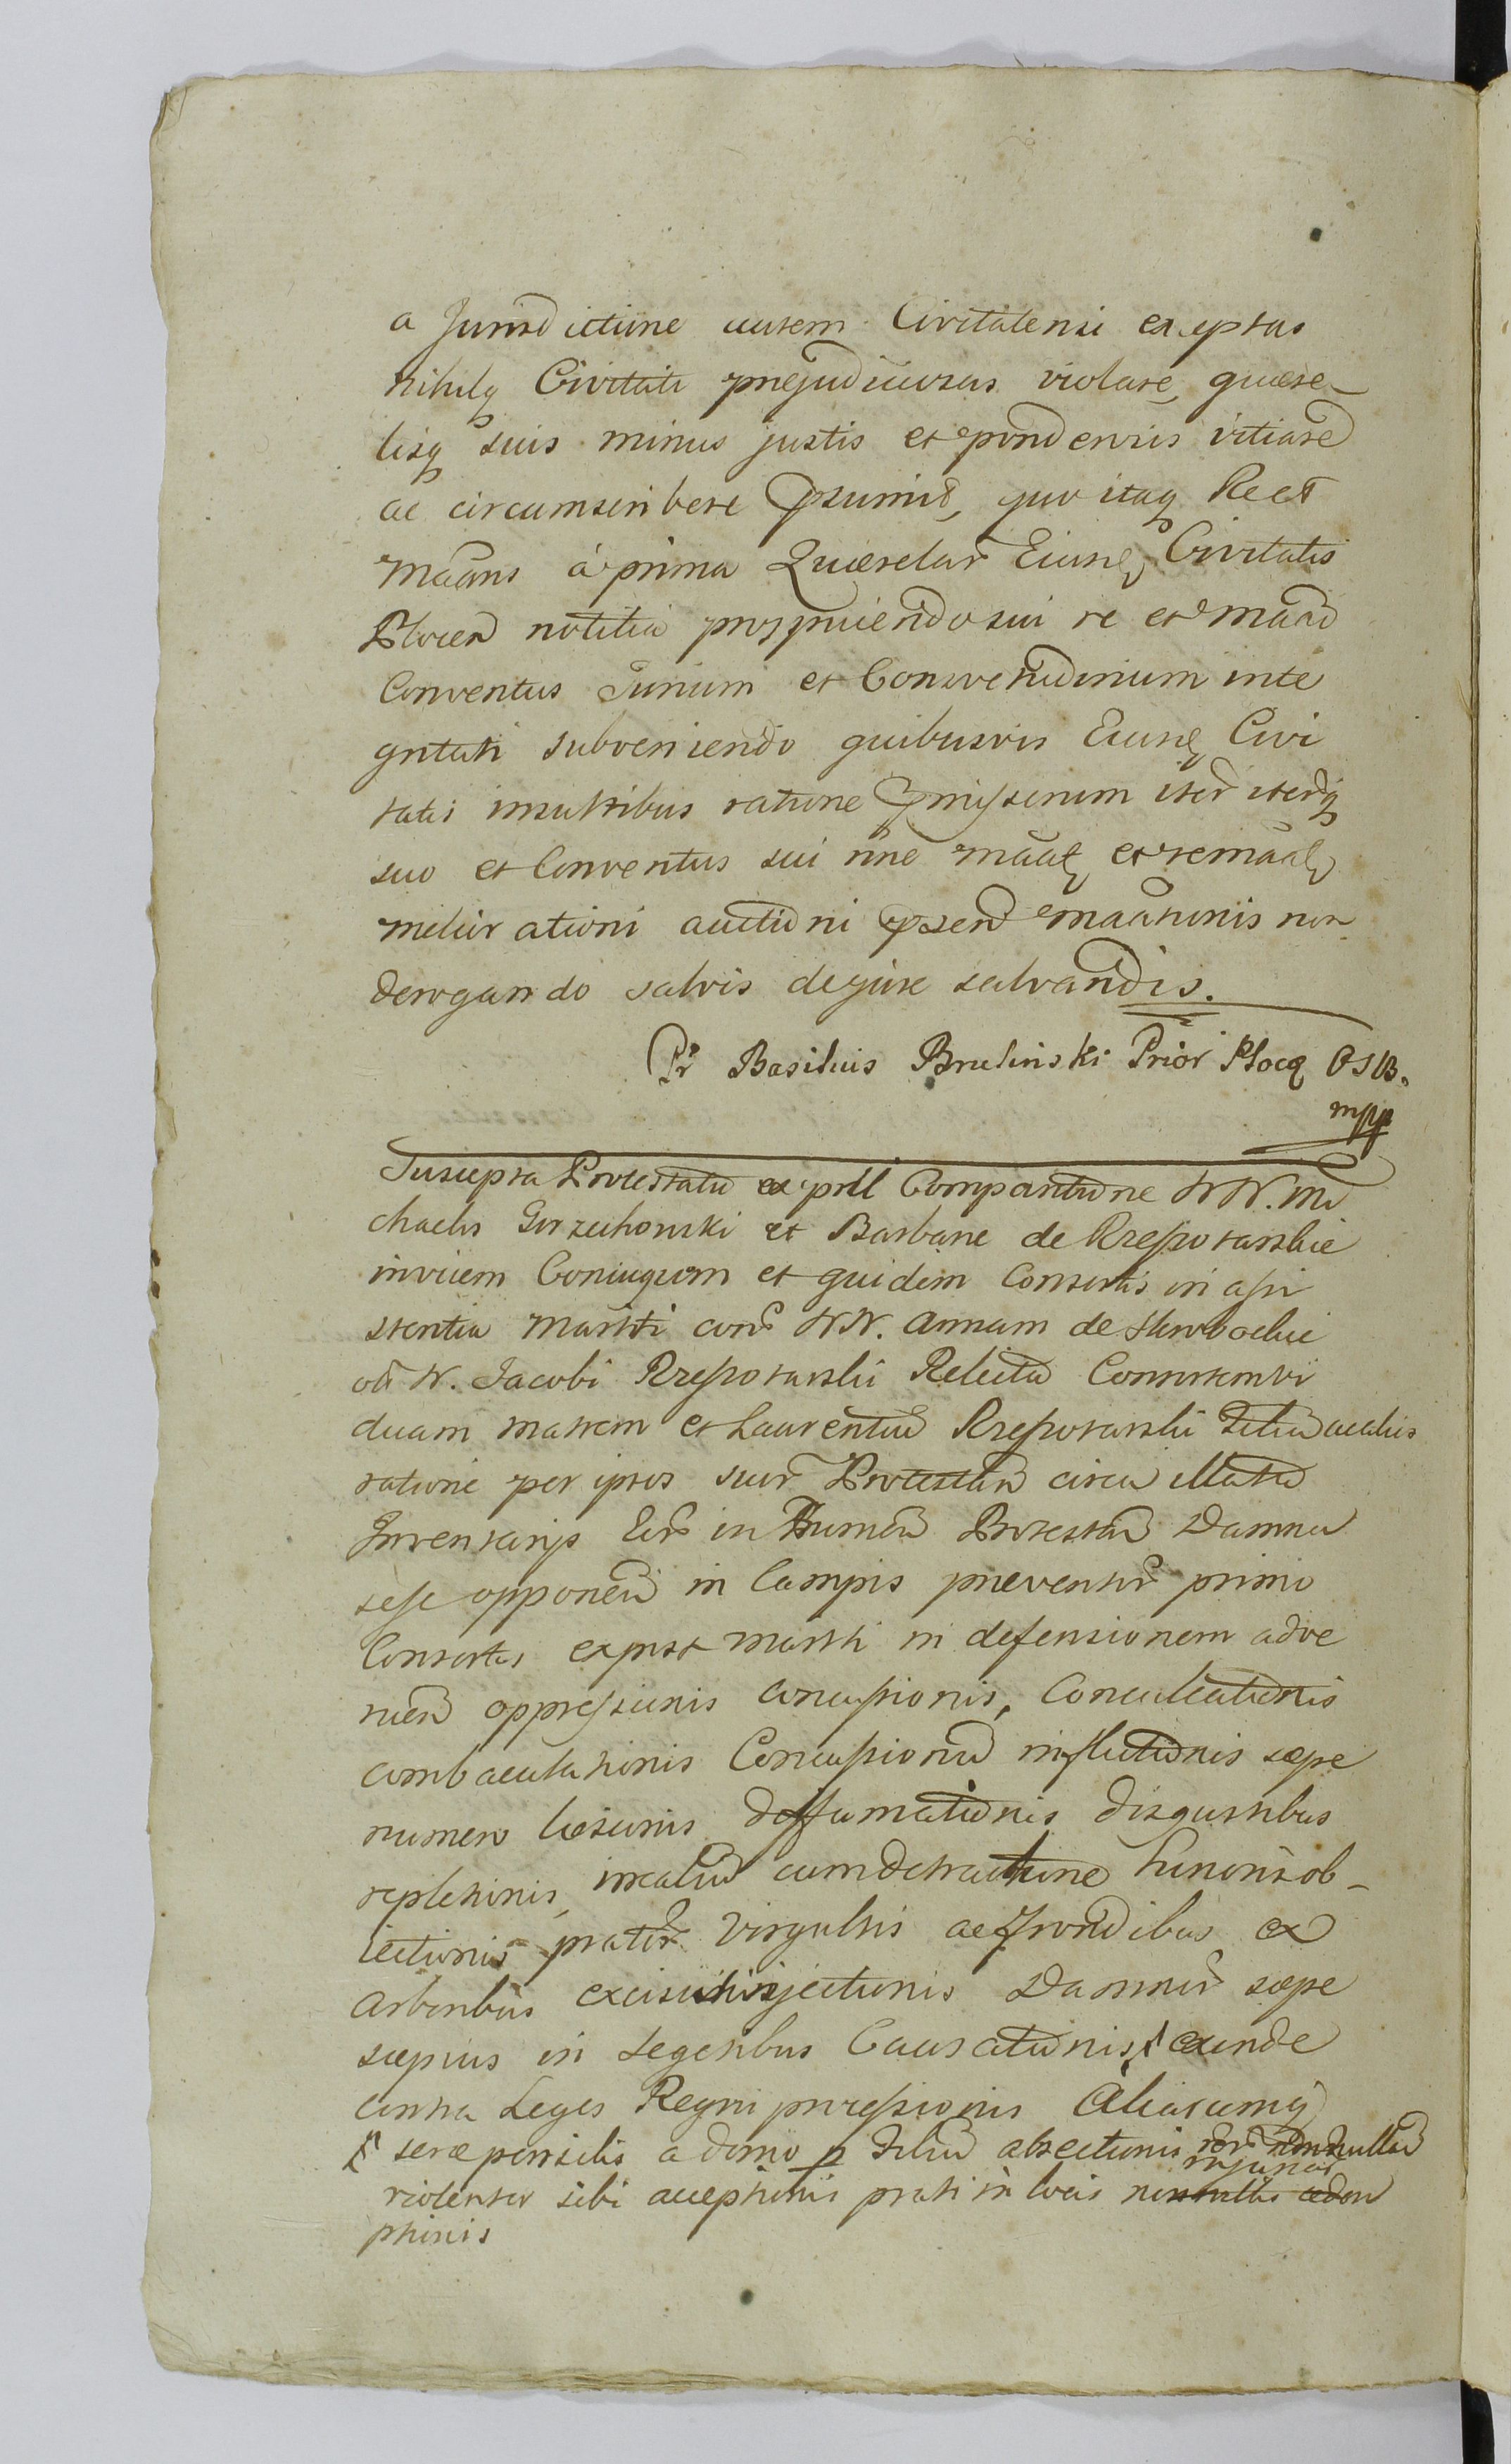 a Jurisdictione autem Civitatensi exeptas
nihilq Civitati prejudiciosas violare, quære-
lisq suis minus justis et ponderosis vitiare
ac circumscribere psumit, quo itaq Rect
maans à prima Quærelar Eiusd Civitatis
Plocen notitia prospiciendo sui re et maad
Conventus Jurium et Consvetudinum inte
gritati subveniendo quibusvis Eiusd Civi
tatis insultibus ratione pmissorum iter iterq
suo et Conventus sui nne maat et remaat
meliorationi auctioni psen maaonis non
derogando salvis de jure salvandis.
Pr Basilius Brulinski Prior Plocq OSB.
mpp
Suscepta Protestatio ex prll Comparitione NN. Mi
chaelis Gorzechowski et Barbaræ de Rzeszotarskie
invicem Coniugum et quidem Consortis in assi
stentia Mariti con NN. Annam de
oli N. Jacobi Rzeszotarski Relicta Consortem vi
duam matrem et Laurentiu Rzeszotarski Filiu
ratione per ipsos suor Protestan circa illata
Inventarijs Eor in Protestan Damna
sese opponen in Campis prævent primo
Consortis expost Mariti in defensionem adve
nien oppressionis concussionis, Conculcationis
combaculationis Concussionu inflictionis sæpe
numero læsionis deffamationis disgustibus
repletionis, cum detractione honoris ob-
iectionis prator virgultis ac frondibus ex
arboribus injectionis Damnor sæpe
sæpius in segetibus Causationis exinde
contra Leges Regni processionis Aliarumq
seræ pensilis a domo p Filiu absectionis
violenter sibi acceptionis prati in locis
ptionis